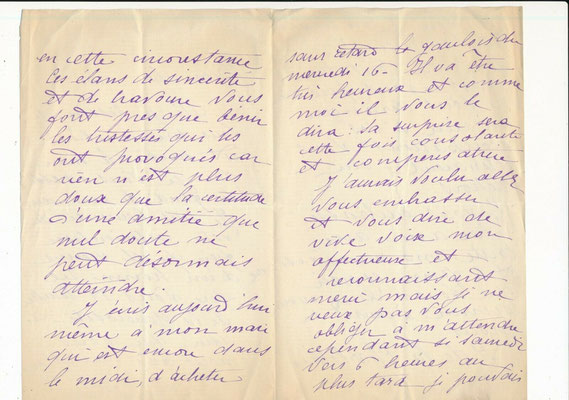 en cette circonstance
Ces élans de sincérité
et de bravoure vous
font presque bénir
les tristesses qui les
ont provoqués car
rien n'est plus
doux que la certitude
d'une amitié que
nul doute ne
peut désormais
atteindre.
J'écris aujourd'hui
même à mon mari
qui est encore dans
le midi, d'acheter
sans retard le gaulois du
mercredi 16 - Il va être
très heureux et comme
moi il vous le
dira : sa surprise sera
cette fois consolante
et
J'aurais voulu aller
vous embrasser
et vous dire de
vive voix mon
affectueux et
reconnaissant
merci mais je ne
veux pas vous
obliger à m'attendre
cependant si samedi
vers 6 heures au
plus tard je pouvais